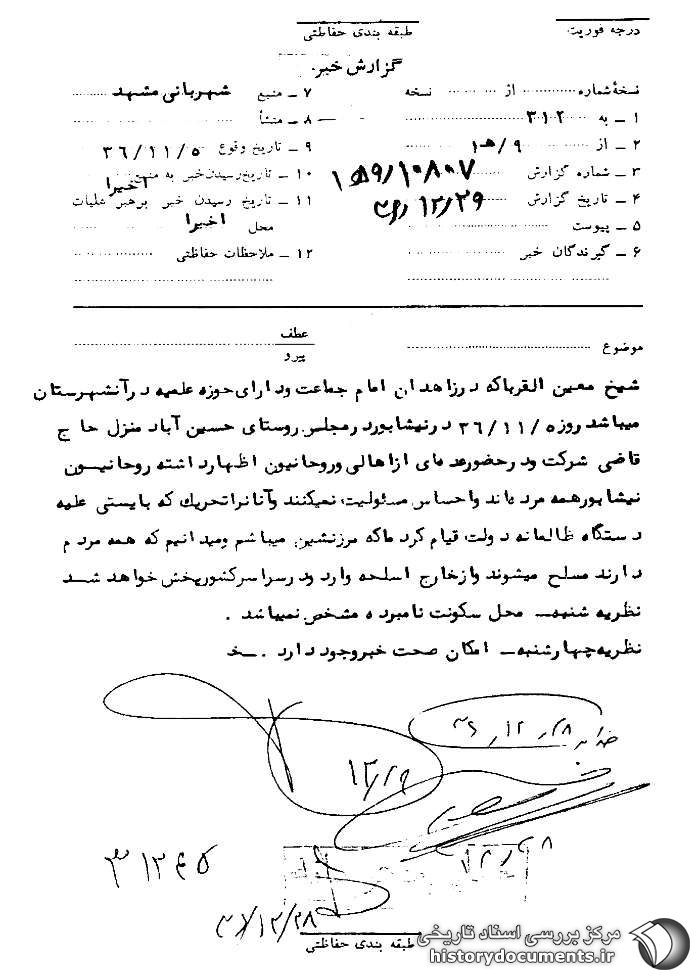 درجه فوریت
طبقه بندی حفاظتی
گزارش خبر
نسخهٔ شماره ............ از ............ نسخه
۱ ـ به ۳۱۲
۲ ـ از ۹/هـ۱
۳ ـ شماره گزارش ۱۰۸۰۷/۹هـ۱
۴ ـ تاریخ گزارش ۳۶/۱۲/۲۹
۵ ـ پیوست
۶ ـ گیرندگان خبر
۷ ـ منبع شهربانی مشهد
۸ ـ منشأ
۹ ـ تاریخ وقوع ۳۶/۱۱/۵
۱۰ ـ تاریخ رسیدن خبر به منبع اخیرا
۱۱ ـ تاریخ رسیدن خبر برهبر عملیات
محل اخیرا
۱۲ ـ ملاحظات حفاظتی
موضوع
عطف
پیرو
شیخ معین الغرباکه درزاهدان امام جماعت ودارای حوزه علمیه درآنشهرستان
میباشد روزه ۳۶/۱۱/۵ درنیشابوردرمجلس روستای حسین آباد منزل حاج
قاضی شرکت ودرحضورعده ای ازاهالی وروحانیون اظهارداشته روحانیون
نیشابورهمه مرده اند واحساس مسئولیت نمیکنند وآنانراتحریك که بایستی علیه
دستگاه ظالمانه دولت قیام کرد ماکه مرزنشین میباشم ومیدانیم که همه مردم
دارند مسلح میشوند وازخارج اسلحه وارد ودرسراسرکشورپخش خواهد شد
نظریه شنبه ـ محل سکونت نامبرده مشخص نمیباشد .
نظریه چهارشنبه ـ امکان صحت خبروجود دارد . خـ
۳۶/۱۲/۲۸
۱۲/۲۹
۱۲/۲۸
۳۱۲۴۵
۳۶/۱۲/۲۸
طبقه بندی حفاظتی
مرکز بررسی اسناد تاریخی
historydocuments.ir